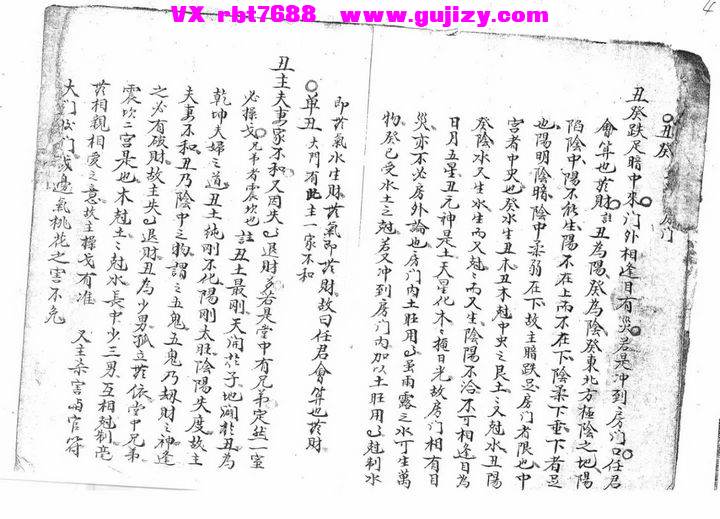 VX rbt7688 www.gujizy.com
4
丑癸 房门
丑癸跌足暗中來门外相逢目有災若是冲到房门口任君
會算也莸財註丑為陽癸為陰癸東北方極陰之地陽
陷陰中陽不能生陽不在上而不在下陰柔下垂下者足
也陽明陰暗陰中柔弱在下故主暗跌足房门者限也中
宮者中央也癸水生丑木丑木尅中央之艮土土又尅水丑陽
癸陰水又生水生而又尅而又生陰陽不洽不可相逢目為
日月五星丑元神是土天星化木木揜日光故房门相有目
災亦不必房外論也房门内土旺用虽雨露之水可生萬
物癸已受水土之尅若又冲到房门内加以土旺用尅制水
即莸氣水生財莸氣即莸財故曰任君會算也莸財
单丑 大门有此主一家不和
丑主夫妻家不和又因失退財多若是堂中有兄弟定然一室
必操戈兄弟者震坎也 註丑土最刚天闻於子地闢於丑為
乾坤夫婦之道丑土純刚不化陽刚太旺陰陽失度故主
夫妻不和丑乃陰中之物謂之五鬼五鬼乃刼財之神逢
之必有破財故主失退財丑為少男孤立莸依堂中兄弟
震坎二宮是也木尅土土尅水長中少三男互相尅制亮
莸相親相爱之意故主操戈有准 又主杀害函官符
大门房门戌邊氣桃花之害不免